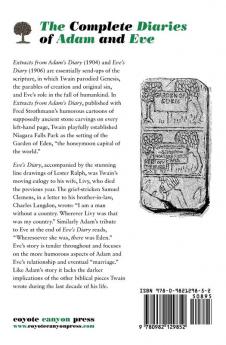 The Complete Diaries
of Adam and Eve
Extracts from Adam's Diary (1904) and Eve's
Diary (1906) are essentially send-ups of the
scripture, in which Twain parodied Genesis,
the parables of creation and original sin, and
and Eve's role in the fall of humankind. In
Extracts from Adam's Diary, published with
Fred Strothmann's humorous cartoons of
supposedly ancient stone carvings on every
left-hand page, Twain playfully established
Niagara Falls Park as the setting of the
Garden of Eden, "the honeymoon capital of
the world."
Eve's Diary, accompanied by the stunning
line drawings of Lester Ralph, was Twain's
moving eulogy to his wife, Livy, who died
the previous year. The grief-stricken Samuel
Clemens, in a letter to his brother-in-law,
Charles Langdon, wrote: "I am a man
without a country. Wherever Livy was that
was my country." Similarly Adam's tribute
to Eve at the end of Eve's Diary reads,
"Wheresoever she was, there was Eden." Eve's
story is tender throughout and focuses on
the more humorous aspects of Adam and
Eve's relationship and eventual "marriage."
Like Adam's story it lacks the darker
implications of the other biblical pieces Twain
wrote during the last decade of his life.
ISBN 978-0-9821298-5-2
50895
9 780982 129852
coyote canyon press
www.coyotecanyonpress.com